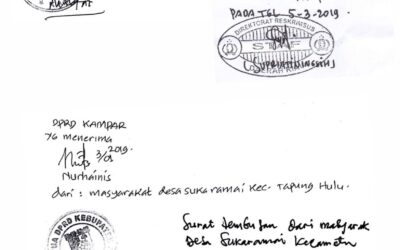 PADA TGL 5-3-2019.
DIREKTORAT RESKRIMSUS
DPRD KAMPAR
Yg menerima
3/03 2019.
Nurhainis
dari : masyarakat desa sukaramai kec. Tapung Hulu.
DPRD KABUPAT
Surat Tembusan Dari masyarak
Desa Sukaramai Kecamata